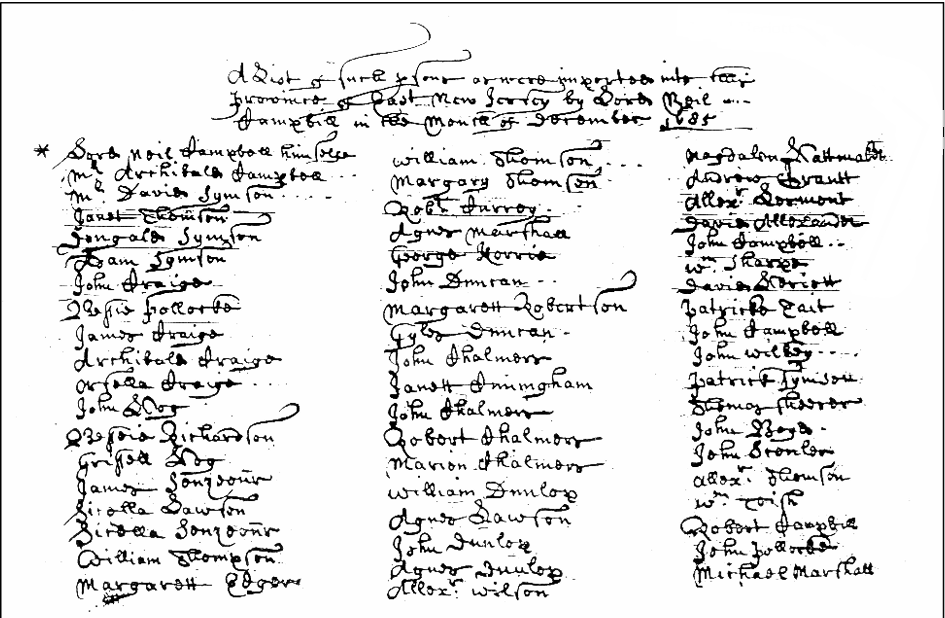 A List of such psons as were imported into this
Province of East New Jersey by Lord Neil
Campbill in the Month of December 1685
* Lord Neil Campbell himselfe
Mr Archibald Campbell
Mr David Symson
Janet Thomson
Symson
Adam Symson
John Craige
Bessie Pollocke
James Craige
Archibald Craige
Orsella Craige
John Hog
Bessie Richardson
Grissell Hog
James
Sicella Lawson
Sicella
William Thompson
Margarett Edger
William Thomson
Margary Thomson
Robt Currey
Agnes Marshall
George Norrie
John Duncan
Margarett Robertson
Gyles Duncan
John Chalmers
Janett Cuningham
John Chalmers
Robert Chalmers
Marion Chalmers
William Dunlop
Agnes Lawson
John Dunlop
Agnes Dunlop
Allexr Wilson
Magdalin
Andrew Grautt
Allexr
David Allexander
John Campbell
Wm Sharpe
David Heriott
Patricke Tait
John Campbell
John
Patrick Symson
Thomas Sheerer
John
John
Allexr Thomson
Wm
Robert Campbill
John Pollocke
Michael Marshall